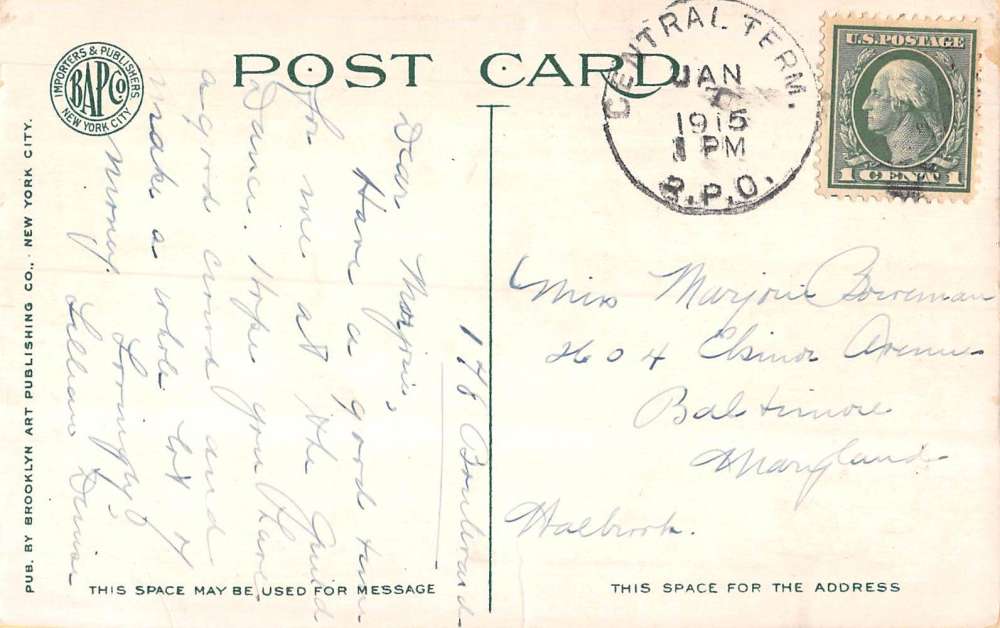 POST CARD
IMPORTERS & PUBLISHERS
BAPCo
NEW YORK CITY
PUB. BY BROOKLYN ART PUBLISHING CO., · NEW YORK CITY.
CENTRAL TERM.
JAN
1915
1 PM
R.P.O.
U.S. POSTAGE
1 CENT 1
178 Boulevard
Dear Marjorie,
Have a good time
for me at the Guild
Dance. Hope you have
a good crowd and
make a whole lot of
money.
Lovingly,
Lillian
Miss Marjorie Bowman
2604 Elsinor Avenue
Baltimore
Maryland
Walbrook.
THIS SPACE MAY BE USED FOR MESSAGE
THIS SPACE FOR THE ADDRESS